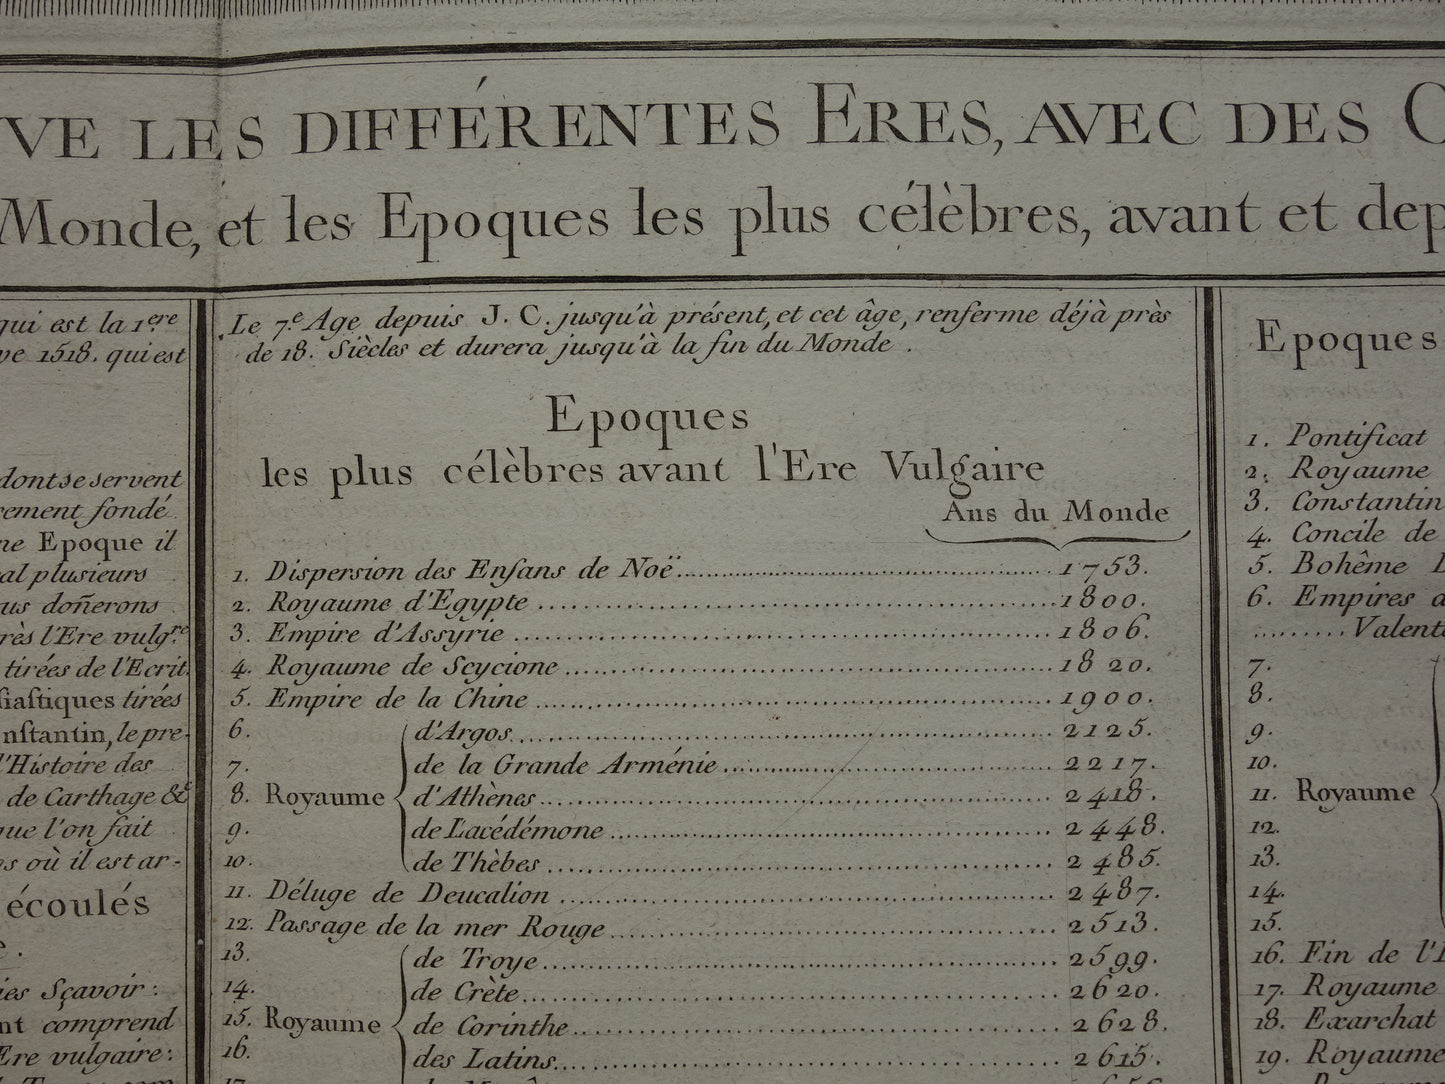 VE LES DIFFÉRENTES ERES, AVEC DES
Monde, et les Epoques les plus célèbres, avant et dep
qui est la 1.ere
1518. qui est
dont se servent
fondé
Epoque il
plusieurs
doñerons
l'Ere vulg.re
tirées de l'Ecrit.
tirées
le pre-
l'Histoire des
de Carthage &c
que l'on fait
où il est ar-
écoulés
Sçavoir :
comprend
Ere vulgaire :
Le 7.e Age depuis J. C. jusqu'à présent, et cet âge, renferme déjà près
de 18. Siècles et durera jusqu'à la fin du Monde .
Epoques
les plus célèbres avant l'Ere Vulgaire
Ans du Monde
1. Dispersion des Enfans de Noë.......... 1753.
2. Royaume d'Egypte .......... 1800.
3. Empire d'Assyrie .......... 1806.
4. Royaume de Scycione .......... 1820.
5. Empire de la Chine .......... 1900.
6. d'Argos .......... 2125.
7. de la Grande Arménie .......... 2217.
8. Royaume d'Athènes .......... 2418.
9. de Lacédémone .......... 2448.
10. de Thèbes .......... 2485.
11. Déluge de Deucalion .......... 2487.
12. Passage de la mer Rouge .......... 2513.
13. de Troye .......... 2599.
14. de Crète .......... 2620.
15. Royaume de Corinthe .......... 2628.
16. des Latins .......... 2615.
17.
Epoques
1. Pontificat
2. Royaume
3. Constantin
4. Concile de
5. Bohême
6. Empires
......... Valent
7.
8.
9.
10.
11. Royaume
12.
13.
14.
15.
16. Fin de
17. Royaume
18. Exarchat
19. Royaume